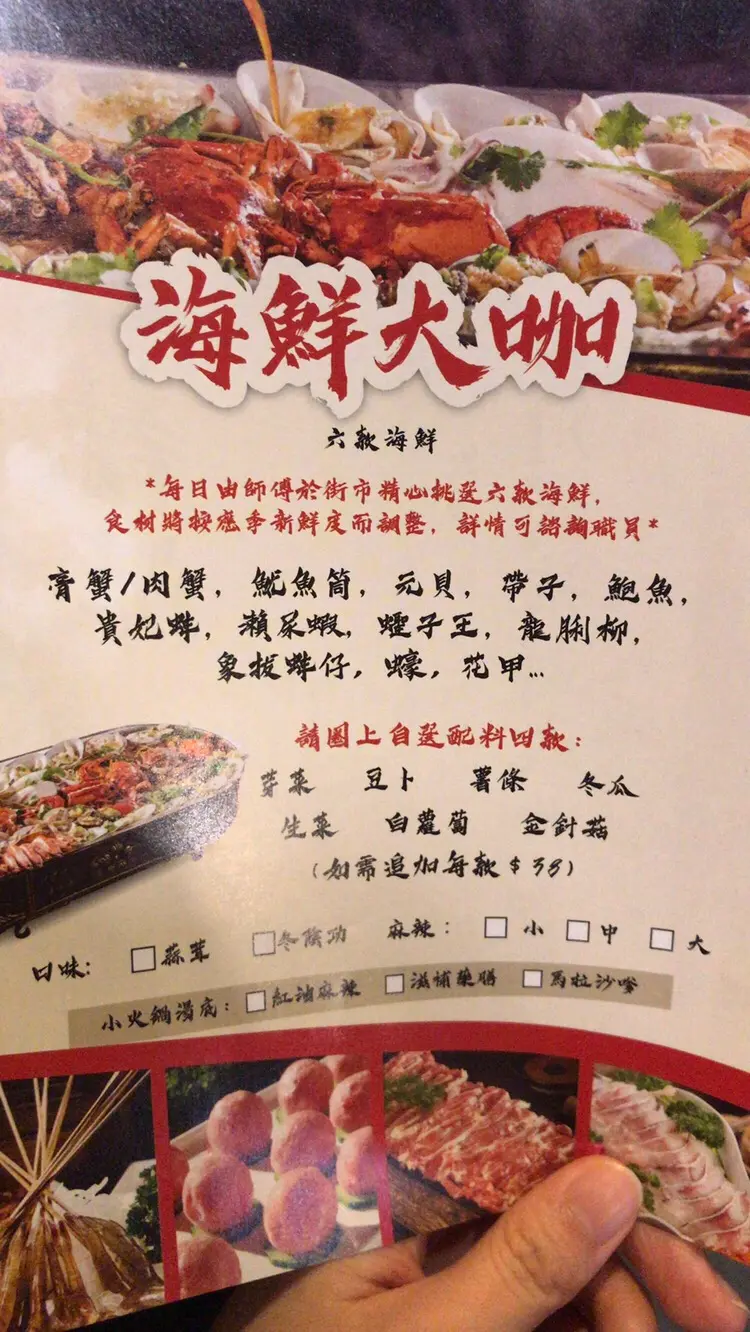 海鮮大咖
六款海鮮
*每日由師傅於街市精心挑選六款海鮮,
食材將按應季新鮮度而調整, 詳情可諮詢職員*
膏蟹/肉蟹, 魷魚筒, 元貝, 帶子, 鮑魚,
貴妃蚌, 瀨尿蝦, 蟶子王, 龍脷柳,
象拔蚌仔, 蠔, 花甲...
請圈上自選配料四款:
芽菜 豆卜 薯條 冬瓜
生菜 白蘿蔔 金針菇
(如需追加每款$38)
口味: 蒜茸 冬陰功 麻辣: 小 中 大
小火鍋湯底: 紅油麻辣 滋補藥膳 馬拉沙嗲